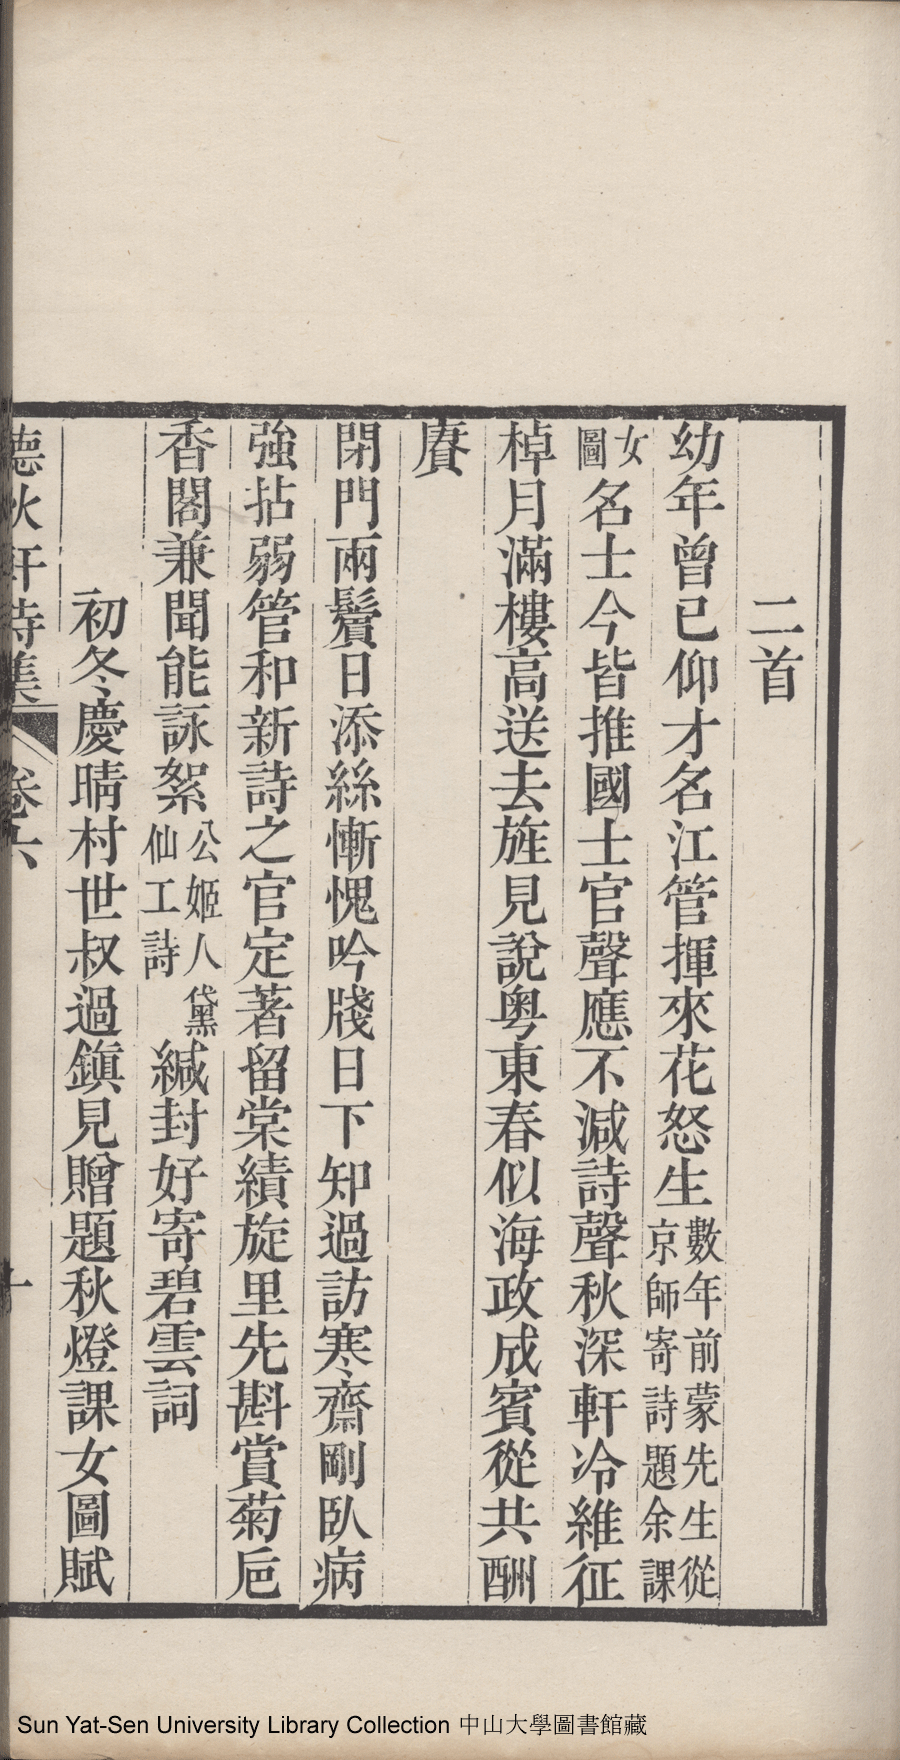 二首
幼年曾已仰才名江管揮來花怒生數年前蒙先生從京師寄詩題余課
女圖名士今皆推國士官聲應不減詩聲秋深軒冷維征
棹月滿樓高送去旌見說粤東春似海政成賓從共酬
賡
閉門兩鬢日添絲慚愧吟牋日下知過訪寒齋剛臥病
強拈弱管和新詩之官定著留棠績旋里先斟賞菊巵
香閣兼聞能詠絮公姬人黛仙工詩緘封好寄碧雲詞
初冬慶晴村世叔過鎮見贈題秋燈課女圖賦
德秋軒詩集
卷六
十
Sun Yat-Sen University Library Collection 中山大學圖書館藏